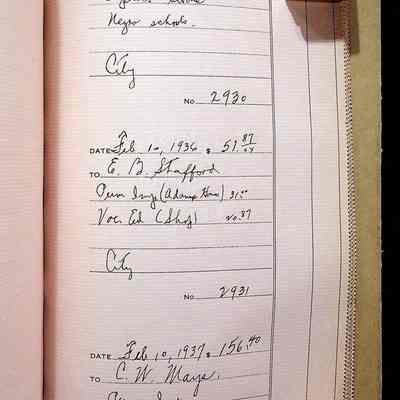 Negro schools.
City
No. 2930
DATE Feb 10, 1936 $ 51.87
TO E. B. Stafford
(Adams
Voc. Ed (Shop) 20.37
City
No. 2931
DATE Feb 10, 1937 $ 156.40
TO C. W. Mays.